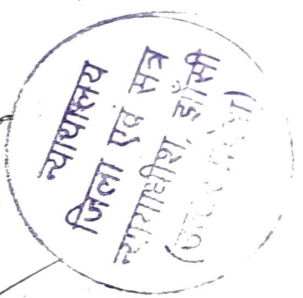 न्यायालय
जिला एवं सत्र
न्यायाधीश, झाँसी